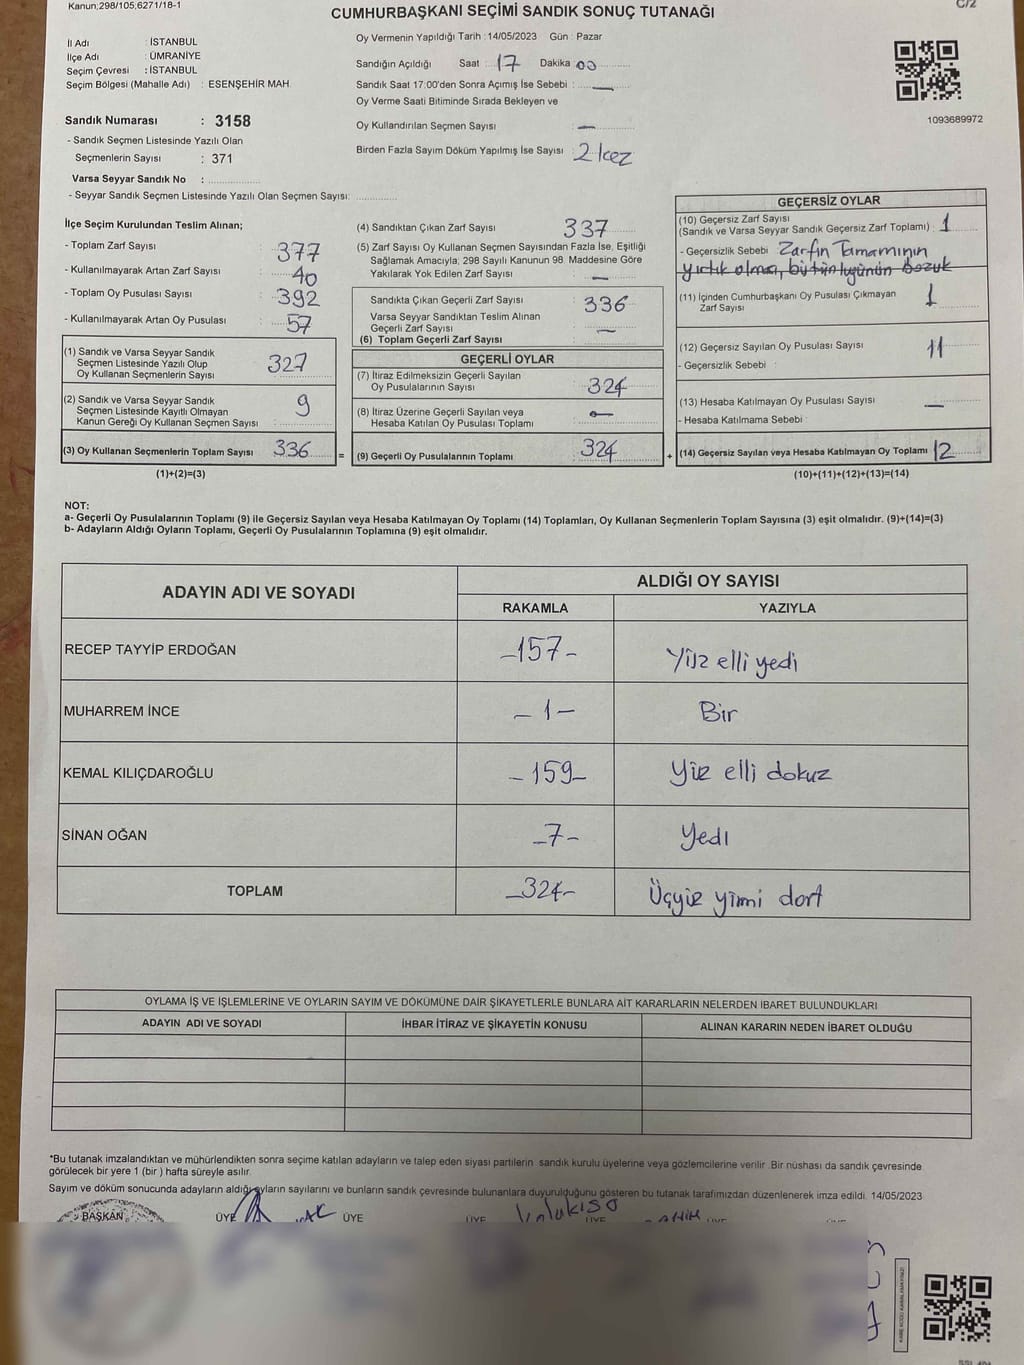 Kanun;298/105;6271/18-1
C/2
CUMHURBAŞKANI SEÇİMİ SANDIK SONUÇ TUTANAĞI
İl Adı : İSTANBUL
İlçe Adı : ÜMRANİYE
Seçim Çevresi : İSTANBUL
Seçim Bölgesi (Mahalle Adı) : ESENŞEHİR MAH.
Sandık Numarası : 3158
- Sandık Seçmen Listesinde Yazılı Olan
Seçmenlerin Sayısı : 371
Varsa Seyyar Sandık No :
- Seyyar Sandık Seçmen Listesinde Yazılı Olan Seçmen Sayısı:
Oy Vermenin Yapıldığı Tarih :14/05/2023 Gün : Pazar
Sandığın Açıldığı Saat : 17 Dakika 00
Sandık Saat 17:00'den Sonra Açımış İse Sebebi : —
Oy Verme Saati Bitiminde Sırada Bekleyen ve
Oy Kullandırılan Seçmen Sayısı : —
Birden Fazla Sayım Döküm Yapılmış İse Sayısı : 2 kez
1093689972
İlçe Seçim Kurulundan Teslim Alınan;
- Toplam Zarf Sayısı : 377
- Kullanılmayarak Artan Zarf Sayısı : 40
- Toplam Oy Pusulası Sayısı : 392
- Kullanılmayarak Artan Oy Pusulası : 57
(1) Sandık ve Varsa Seyyar Sandık
Seçmen Listesinde Yazılı Olup
Oy Kullanan Seçmenlerin Sayısı 327
(2) Sandık ve Varsa Seyyar Sandık
Seçmen Listesinde Kayıtlı Olmayan
Kanun Gereği Oy Kullanan Seçmen Sayısı : 9
(3) Oy Kullanan Seçmenlerin Toplam Sayısı 336 =
(1)+(2)=(3)
(4) Sandıktan Çıkan Zarf Sayısı : 337
(5) Zarf Sayısı Oy Kullanan Seçmen Sayısından Fazla İse, Eşitliği
Sağlamak Amacıyla; 298 Sayılı Kanunun 98. Maddesine Göre
Yakılarak Yok Edilen Zarf Sayısı : —
Sandıkta Çıkan Geçerli Zarf Sayısı : 336
Varsa Seyyar Sandıktan Teslim Alınan
Geçerli Zarf Sayısı : —
(6) Toplam Geçerli Zarf Sayısı :
GEÇERLİ OYLAR
(7) İtiraz Edilmeksizin Geçerli Sayılan
Oy Pusulalarının Sayısı : 324
(8) İtiraz Üzerine Geçerli Sayılan veya
Hesaba Katılan Oy Pusulası Toplamı : —
(9) Geçerli Oy Pusulalarının Toplamı : 324 +
GEÇERSİZ OYLAR
(10) Geçersiz Zarf Sayısı
(Sandık ve Varsa Seyyar Sandık Geçersiz Zarf Toplamı) : 1
- Geçersizlik Sebebi : Zarfın Tamamının
yırtık olması, bütünlüğünün Bozuk
(11) İçinden Cumhurbaşkanı Oy Pusulası Çıkmayan
Zarf Sayısı : 1
(12) Geçersiz Sayılan Oy Pusulası Sayısı : 11
- Geçersizlik Sebebi :
(13) Hesaba Katılmayan Oy Pusulası Sayısı : —
- Hesaba Katılmama Sebebi :
(14) Geçersiz Sayılan veya Hesaba Katılmayan Oy Toplamı 12
(10)+(11)+(12)+(13)=(14)
NOT:
a- Geçerli Oy Pusulalarının Toplamı (9) ile Geçersiz Sayılan veya Hesaba Katılmayan Oy Toplamı (14) Toplamları, Oy Kullanan Seçmenlerin Toplam Sayısına (3) eşit olmalıdır. (9)+(14)=(3)
b- Adayların Aldığı Oyların Toplamı, Geçerli Oy Pusulalarının Toplamına (9) eşit olmalıdır.
ADAYIN ADI VE SOYADI ALDIĞI OY SAYISI
RAKAMLA YAZIYLA
RECEP TAYYİP ERDOĞAN -157- Yüz elli yedi
MUHARREM İNCE -1- Bir
KEMAL KILIÇDAROĞLU -159- Yüz elli dokuz
SİNAN OĞAN -7- Yedi
TOPLAM -324- Üçyüz yirmi dört
OYLAMA İŞ VE İŞLEMLERİNE VE OYLARIN SAYIM VE DÖKÜMÜNE DAİR ŞİKAYETLERLE BUNLARA AİT KARARLARIN NELERDEN İBARET BULUNDUKLARI
ADAYIN ADI VE SOYADI İHBAR İTİRAZ VE ŞİKAYETİN KONUSU ALINAN KARARIN NEDEN İBARET OLDUĞU
*Bu tutanak imzalandıktan ve mühürlendikten sonra seçime katılan adayların ve talep eden siyasi partilerin sandık kurulu üyelerine veya gözlemcilerine verilir. Bir nüshası da sandık çevresinde
görülecek bir yere 1 (bir ) hafta süreyle asılır.
Sayım ve döküm sonucunda adayların aldığı oyların sayılarını ve bunların sandık çevresinde bulunanlara duyurulduğunu gösteren bu tutanak tarafımızdan düzenlenerek imza edildi. 14/05/2023
BAŞKAN ÜYE ÜYE ÜYE ÜYE